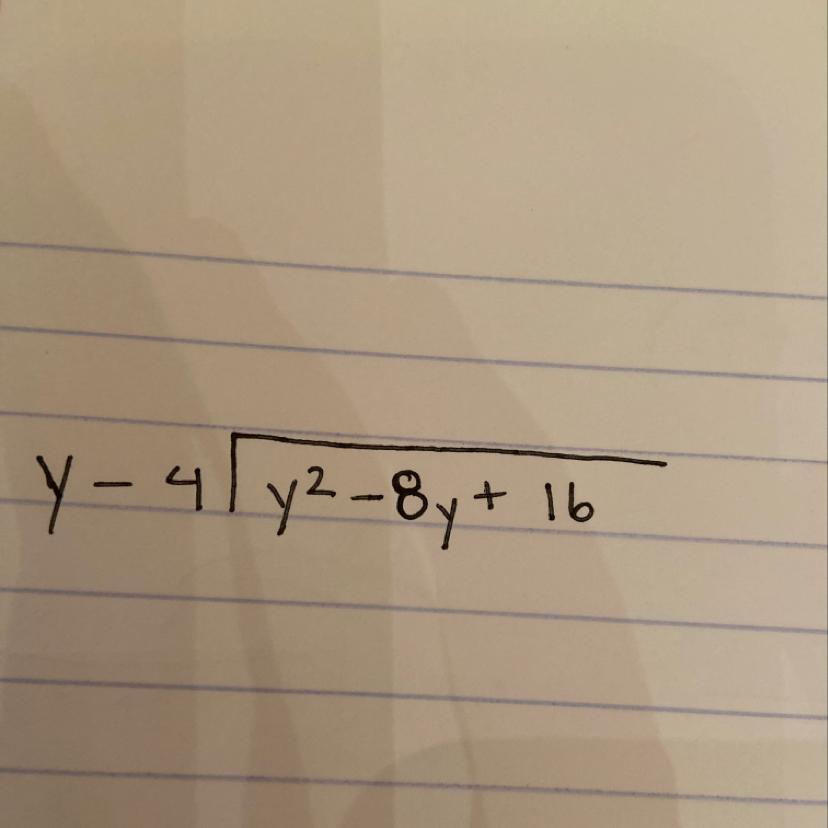 y - 4 √ y² - 8y + 16